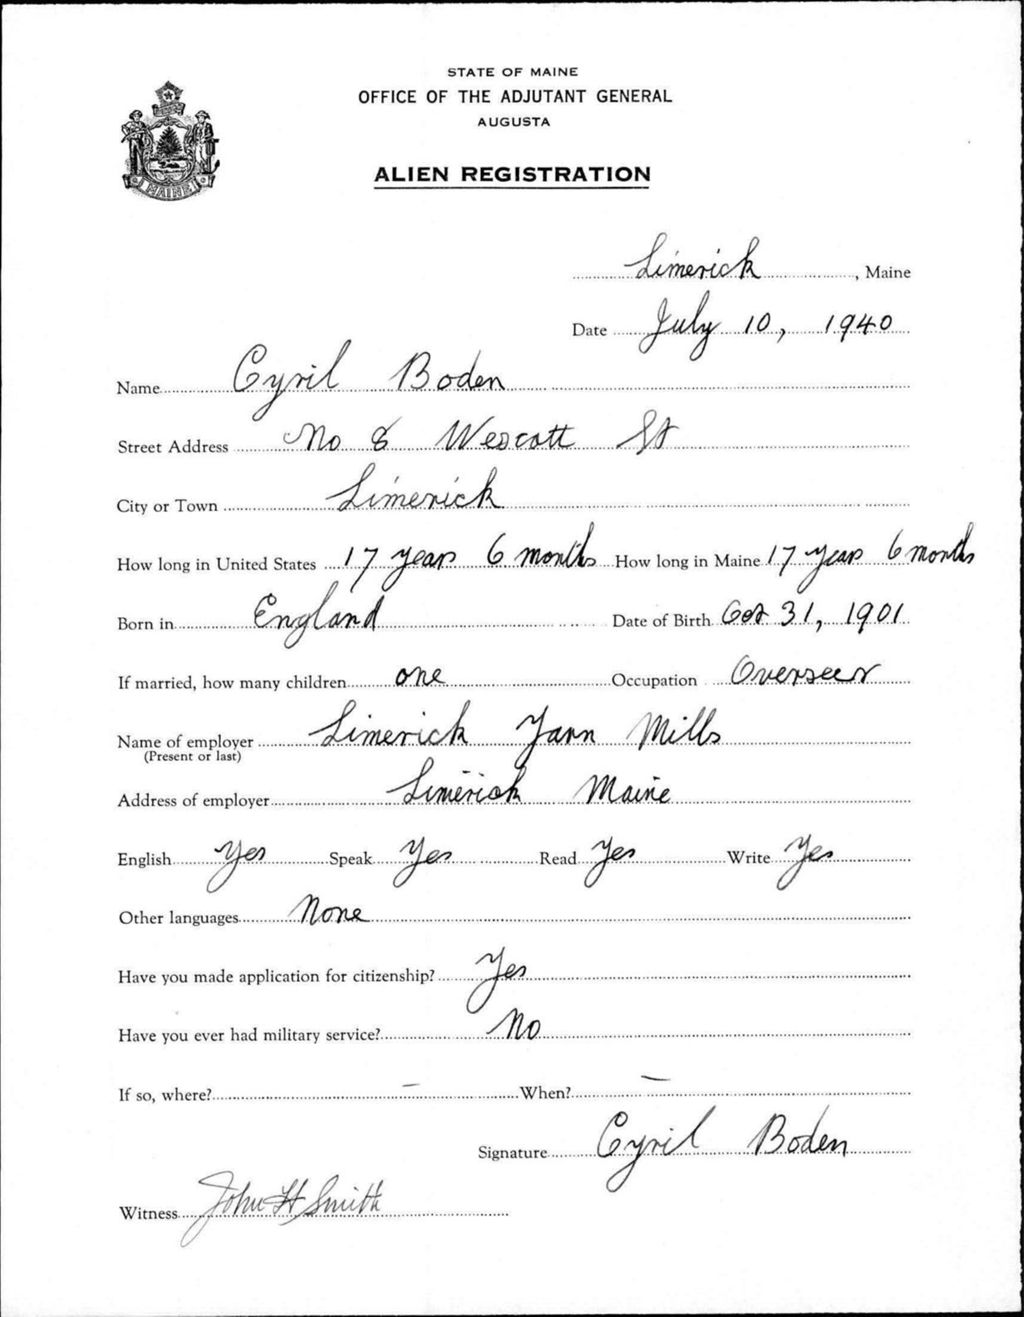 STATE OF MAINE
OFFICE OF THE ADJUTANT GENERAL
AUGUSTA
ALIEN REGISTRATION
MAINE
Limerick, Maine
Date July 10, 1940
Name Cyril Boden
Street Address No 8 Wescott St
City or Town Limerick
How long in United States 17 years 6 months How long in Maine 17 years 6 months
Born in England Date of Birth Oct 31, 1901
If married, how many children one Occupation Overseer
Name of employer Limerick Yarn Mills
(Present or last)
Address of employer Limerick Maine
English Yes Speak Yes Read Yes Write Yes
Other languages None
Have you made application for citizenship? Yes
Have you ever had military service? No
If so, where? — When? —
Signature Cyril Boden
Witness John H Smith